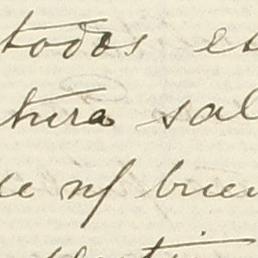 todos es
tura sal
de nf buen